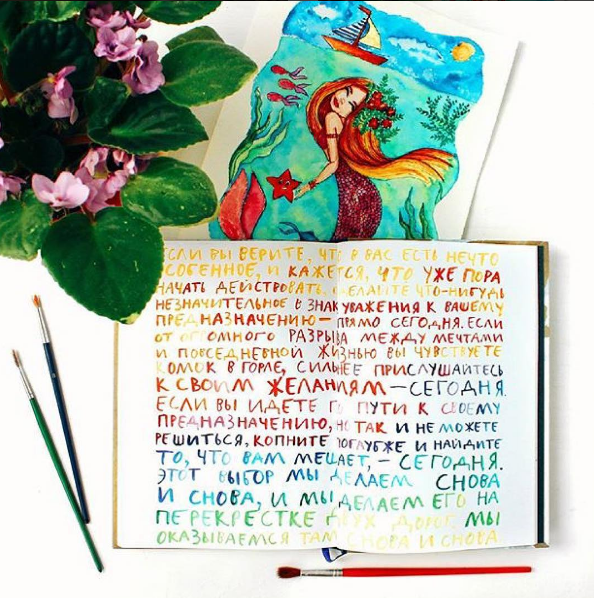 ЕСЛИ ВЫ ВЕРИТЕ, ЧТО В ВАС ЕСТЬ НЕЧТО
ОСОБЕННОЕ, И КАЖЕТСЯ, ЧТО УЖЕ ПОРА
НАЧАТЬ ДЕЙСТВОВАТЬ, СДЕЛАЙТЕ ЧТО-НИБУДЬ
НЕЗНАЧИТЕЛЬНОЕ В ЗНАК УВАЖЕНИЯ К ВАШЕМУ
ПРЕДНАЗНАЧЕНИЮ — ПРЯМО СЕГОДНЯ. ЕСЛИ
ОТ ОГРОМНОГО РАЗРЫВА МЕЖДУ МЕЧТАМИ
И ПОВСЕДНЕВНОЙ ЖИЗНЬЮ ВЫ ЧУВСТВУЕТЕ
КОМОК В ГОРЛЕ, СИЛЬНЕЕ ПРИСЛУШАЙТЕСЬ
К СВОИМ ЖЕЛАНИЯМ — СЕГОДНЯ.
ЕСЛИ ВЫ ИДЕТЕ ПО ПУТИ К СВОЕМУ
ПРЕДНАЗНАЧЕНИЮ, НО ТАК И НЕ МОЖЕТЕ
РЕШИТЬСЯ, КОПНИТЕ ПОГЛУБЖЕ И НАЙДИТЕ
ТО, ЧТО ВАМ МЕШАЕТ, — СЕГОДНЯ.
ЭТОТ ВЫБОР МЫ ДЕЛАЕМ СНОВА
И СНОВА, И МЫ ДЕЛАЕМ ЕГО НА
ПЕРЕКРЕСТКЕ ДВУХ ДОРОГ. МЫ
ОКАЗЫВАЕМСЯ ТАМ СНОВА И СНОВА.